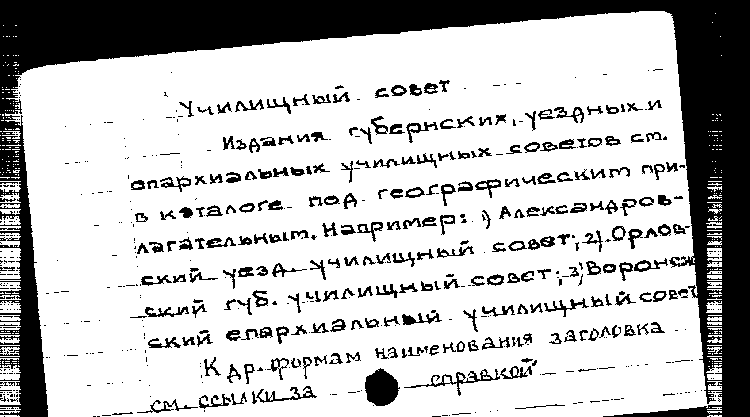 Училищный совет
Издания губернских, уездных и
епархиальных училищных советов см.
в каталоге под географическим при-
лагательным. Например: 1) Александров-
ский уезд. училищный совет; 2) Орлов-
ский губ. училищный совет; 3) Воронеж
ский епархиальный училищный совет
К др. формам наименования заголовка
см. ссылки за справкой